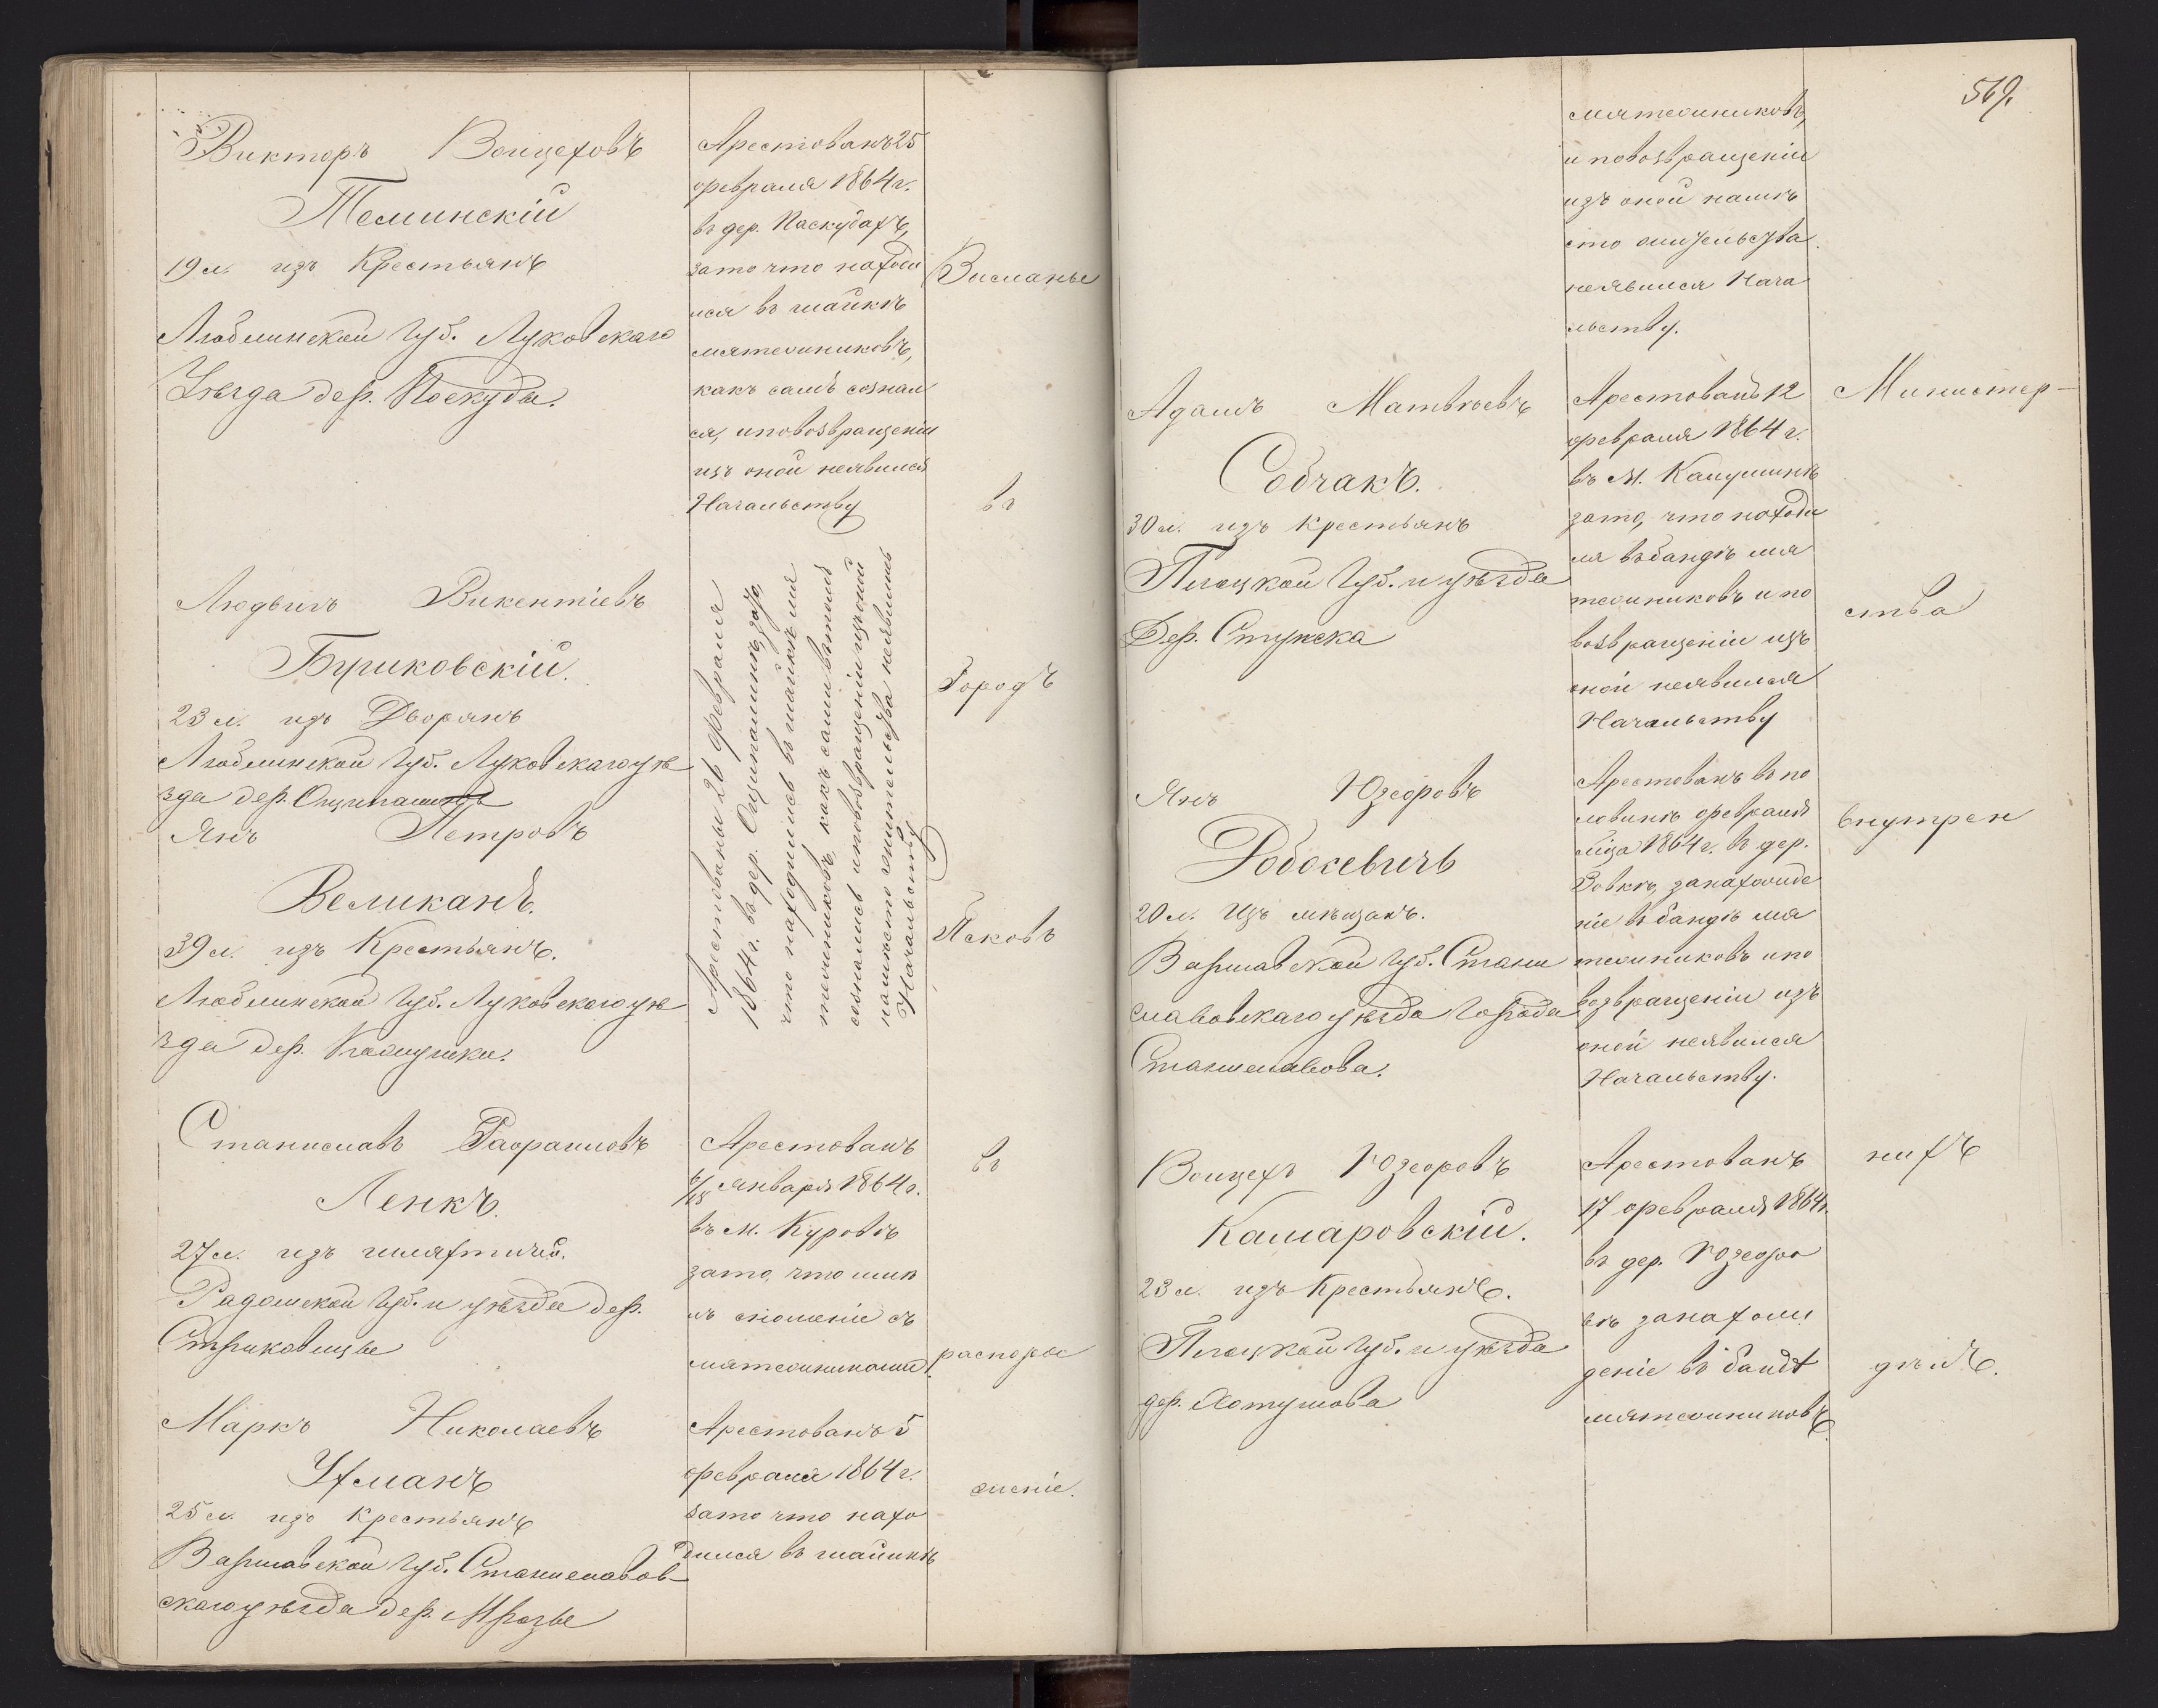 Викторъ Войцеховъ
Теминскій
19 л. изъ Крестьянъ
Люблинской Губ. Луковскаго
Уѣзда дер. Поскуды.
Арестованъ 25
февраля 1864 г.
въ дер. Паскудахъ,
зато что находи
лся въ шайкѣ
мятежниковъ,
какъ самъ сознал
ся, и повозвращеніи
изъ оной неявился
Начальству
Высланы
въ
Людвигъ Викентіевъ
Буйковскій.
23 л. изъ Дворянъ
Люблинской Губ. Луковскаго уѣ
зда дер.
Янъ Петровъ
Великанъ.
39 л. изъ Крестьянъ.
Люблинской Губ. Луковскаго уѣ
зда дер.
Арестованы 26 февраля
1864 г. въ дер. зато,
что находились въ шайкѣ мя
тежниковъ, какъ сами въ томъ
сознались и повозвращеніи изъ оной
намѣсто жительства неявились
Начальству
Городъ
Псковъ
Станиславъ Рафаиловъ
Ленкъ.
27 л. изъ шляхтичей.
Радомской Губ. и уѣзда дер.
Стриковицы
Арестованъ
6/18 января 1864 г.
въ м. Куровѣ
зато, что имѣ
лъ сношеніе съ
мятежниками.
въ
распоря
Маркъ Николаевъ
Ухманъ
25 л. изъ Крестьянъ
Варшавской Губ. Станиславов-
скаго уѣзда дер. Мрозы
Арестованъ 5
февраля 1864 г.
зато что нахо
дился въ шайкѣ
женіе.
569.
мятежниковъ,
и повозвращеніи
изъ оной намѣ
сто жительства
неявился Нача
льству.
Адамъ Матвѣевъ
Собчакъ.
30 л. изъ крестьянъ
Плоцкой Губ. и уѣзда
Дер. Ступска
Арестованъ 12
февраля 1864 г.
въ м. Калушинѣ
зато, что находи
лся въ бандѣ мя
тежниковъ и по
возвращеніи изъ
оной неявился
Начальству
Министер-
ства
Янъ Юзефовъ
Робосевичъ
20 л. Изъ мѣщанъ.
Варшавской Губ. Стани
славовскаго уѣзда Города
Станиславова.
Арестованъ въ по
ловинѣ февраля
мѣца 1864 г. въ дер.
занахожде
ніе въ бандѣ мя
тежниковъ и по
возвращеніи изъ
оной неявился
Начальству.
внутрен
Войцехъ Юзефовъ
Камаровскій.
23 л. изъ Крестьянъ.
Плоцкой Губ. и уѣзда
дер.
Арестованъ
17 февраля 1864 г.
въ дер. Юзефо
вѣ занахож
деніе въ бандѣ
мятежниковъ.
нихъ
дѣлъ.